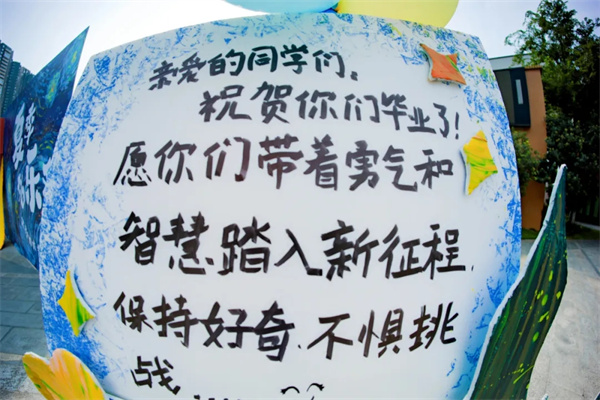 亲爱的同学们。
祝贺你们毕业了!
愿你们带着勇气和
智慧踏入新征程.
保持好奇、不惧挑
战.